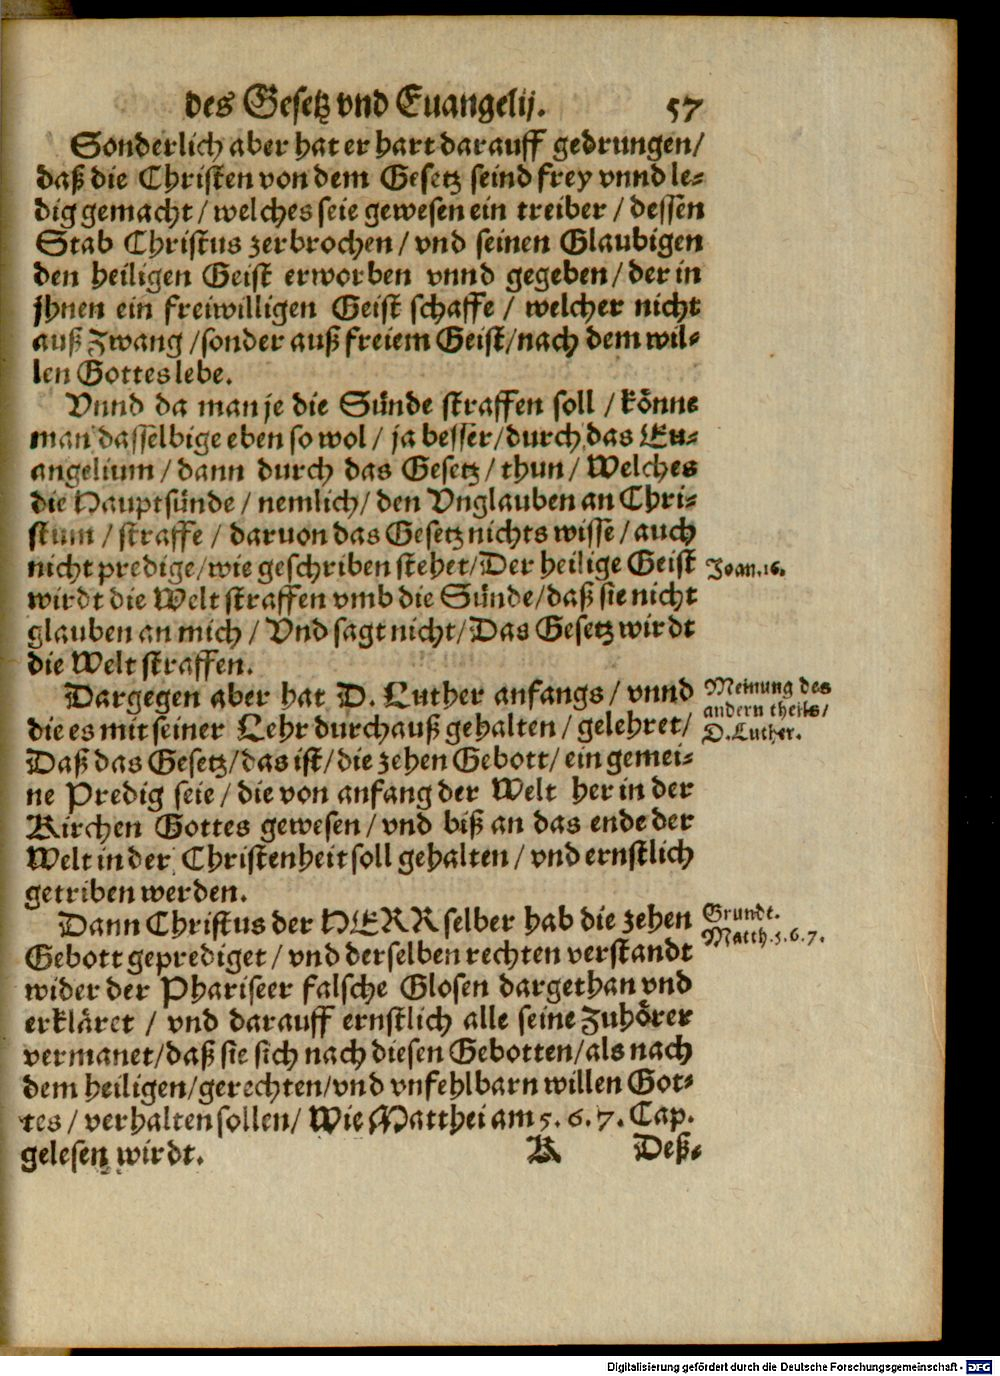 des Gesetz vnd Euangelij. 57
Sonderlich aber hat er hart darauff gedrungen/
daß die Christen von dem Gesetz seind frey vnnd le-
dig gemacht / welches seie gewesen ein treiber / dessen
Stab Christus zerbrochen / vnd seinen Glaubigen
den heiligen Geist erworben vnnd gegeben / der in
jhnen ein freiwilligen Geist schaffe / welcher nicht
auß Zwang / sonder auß freiem Geist/ nach dem wil-
len Gottes lebe.
Vnnd da man je die Sünde straffen soll / könne
man dasselbige eben so wol / ja besser/ durch das Eu-
angelium / dann durch das Gesetz / thun / Welches
die Hauptsünde / nemlich / den Vnglauben an Chri-
stum / straffe / daruon das Gesetz nichts wisse / auch
nicht predige/ wie geschriben stehet/ Der heilige Geist
Joan. 16.
wirdt die Welt straffen vmb die Sünde/ daß sie nicht
glauben an mich / Vnd sagt nicht/ Das Gesetz wirdt
die Welt straffen.
Dargegen aber hat D. Luther anfangs / vnnd
Meinung des
andern theils/
D. Luther.
die es mit seiner Lehr durchauß gehalten / gelehret/
Daß das Gesetz/ das ist/ die zehen Gebott/ ein gemei-
ne Predig seie / die von anfang der Welt her in der
Kirchen Gottes gewesen / vnd biß an das ende der
Welt in der Christenheit soll gehalten / vnd ernstlich
getriben werden.
Dann Christus der HERR selber hab die zehen
Grundt.
Matth. 5. 6. 7.
Gebott geprediget / vnd derselben rechten verstandt
wider der Phariseer falsche Glosen dargethan vnd
erkläret / vnd darauff ernstlich alle seine Zuhörer
vermanet/ daß sie sich nach diesen Gebotten/ als nach
dem heiligen/ gerechten/ vnd vnfehlbarn willen Got-
tes / verhalten sollen/ Wie Matthei am 5. 6. 7. Cap.
gelesen wirdt. K Deß-
Digitalisierung gefördert durch die Deutsche Forschungsgemeinschaft - DFG